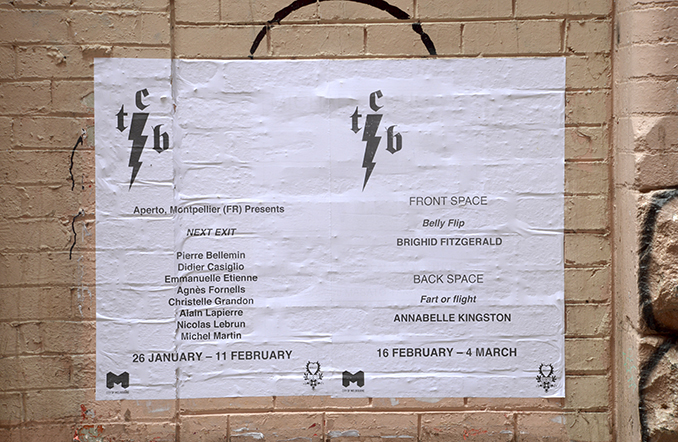 t c b
Aperto, Montpellier (FR) Presents
NEXT EXIT
Pierre Bellemin
Didier Casiglio
Emmanuelle Etienne
Agnès Fornells
Christelle Grandon
Alain Lapierre
Nicolas Lebrun
Michel Martin
26 JANUARY – 11 FEBRUARY
M
CITY OF MELBOURNE
t c b
FRONT SPACE
Belly Flip
BRIGHID FITZGERALD
BACK SPACE
Fart or flight
ANNABELLE KINGSTON
16 FEBRUARY – 4 MARCH
M
CITY OF MELBOURNE